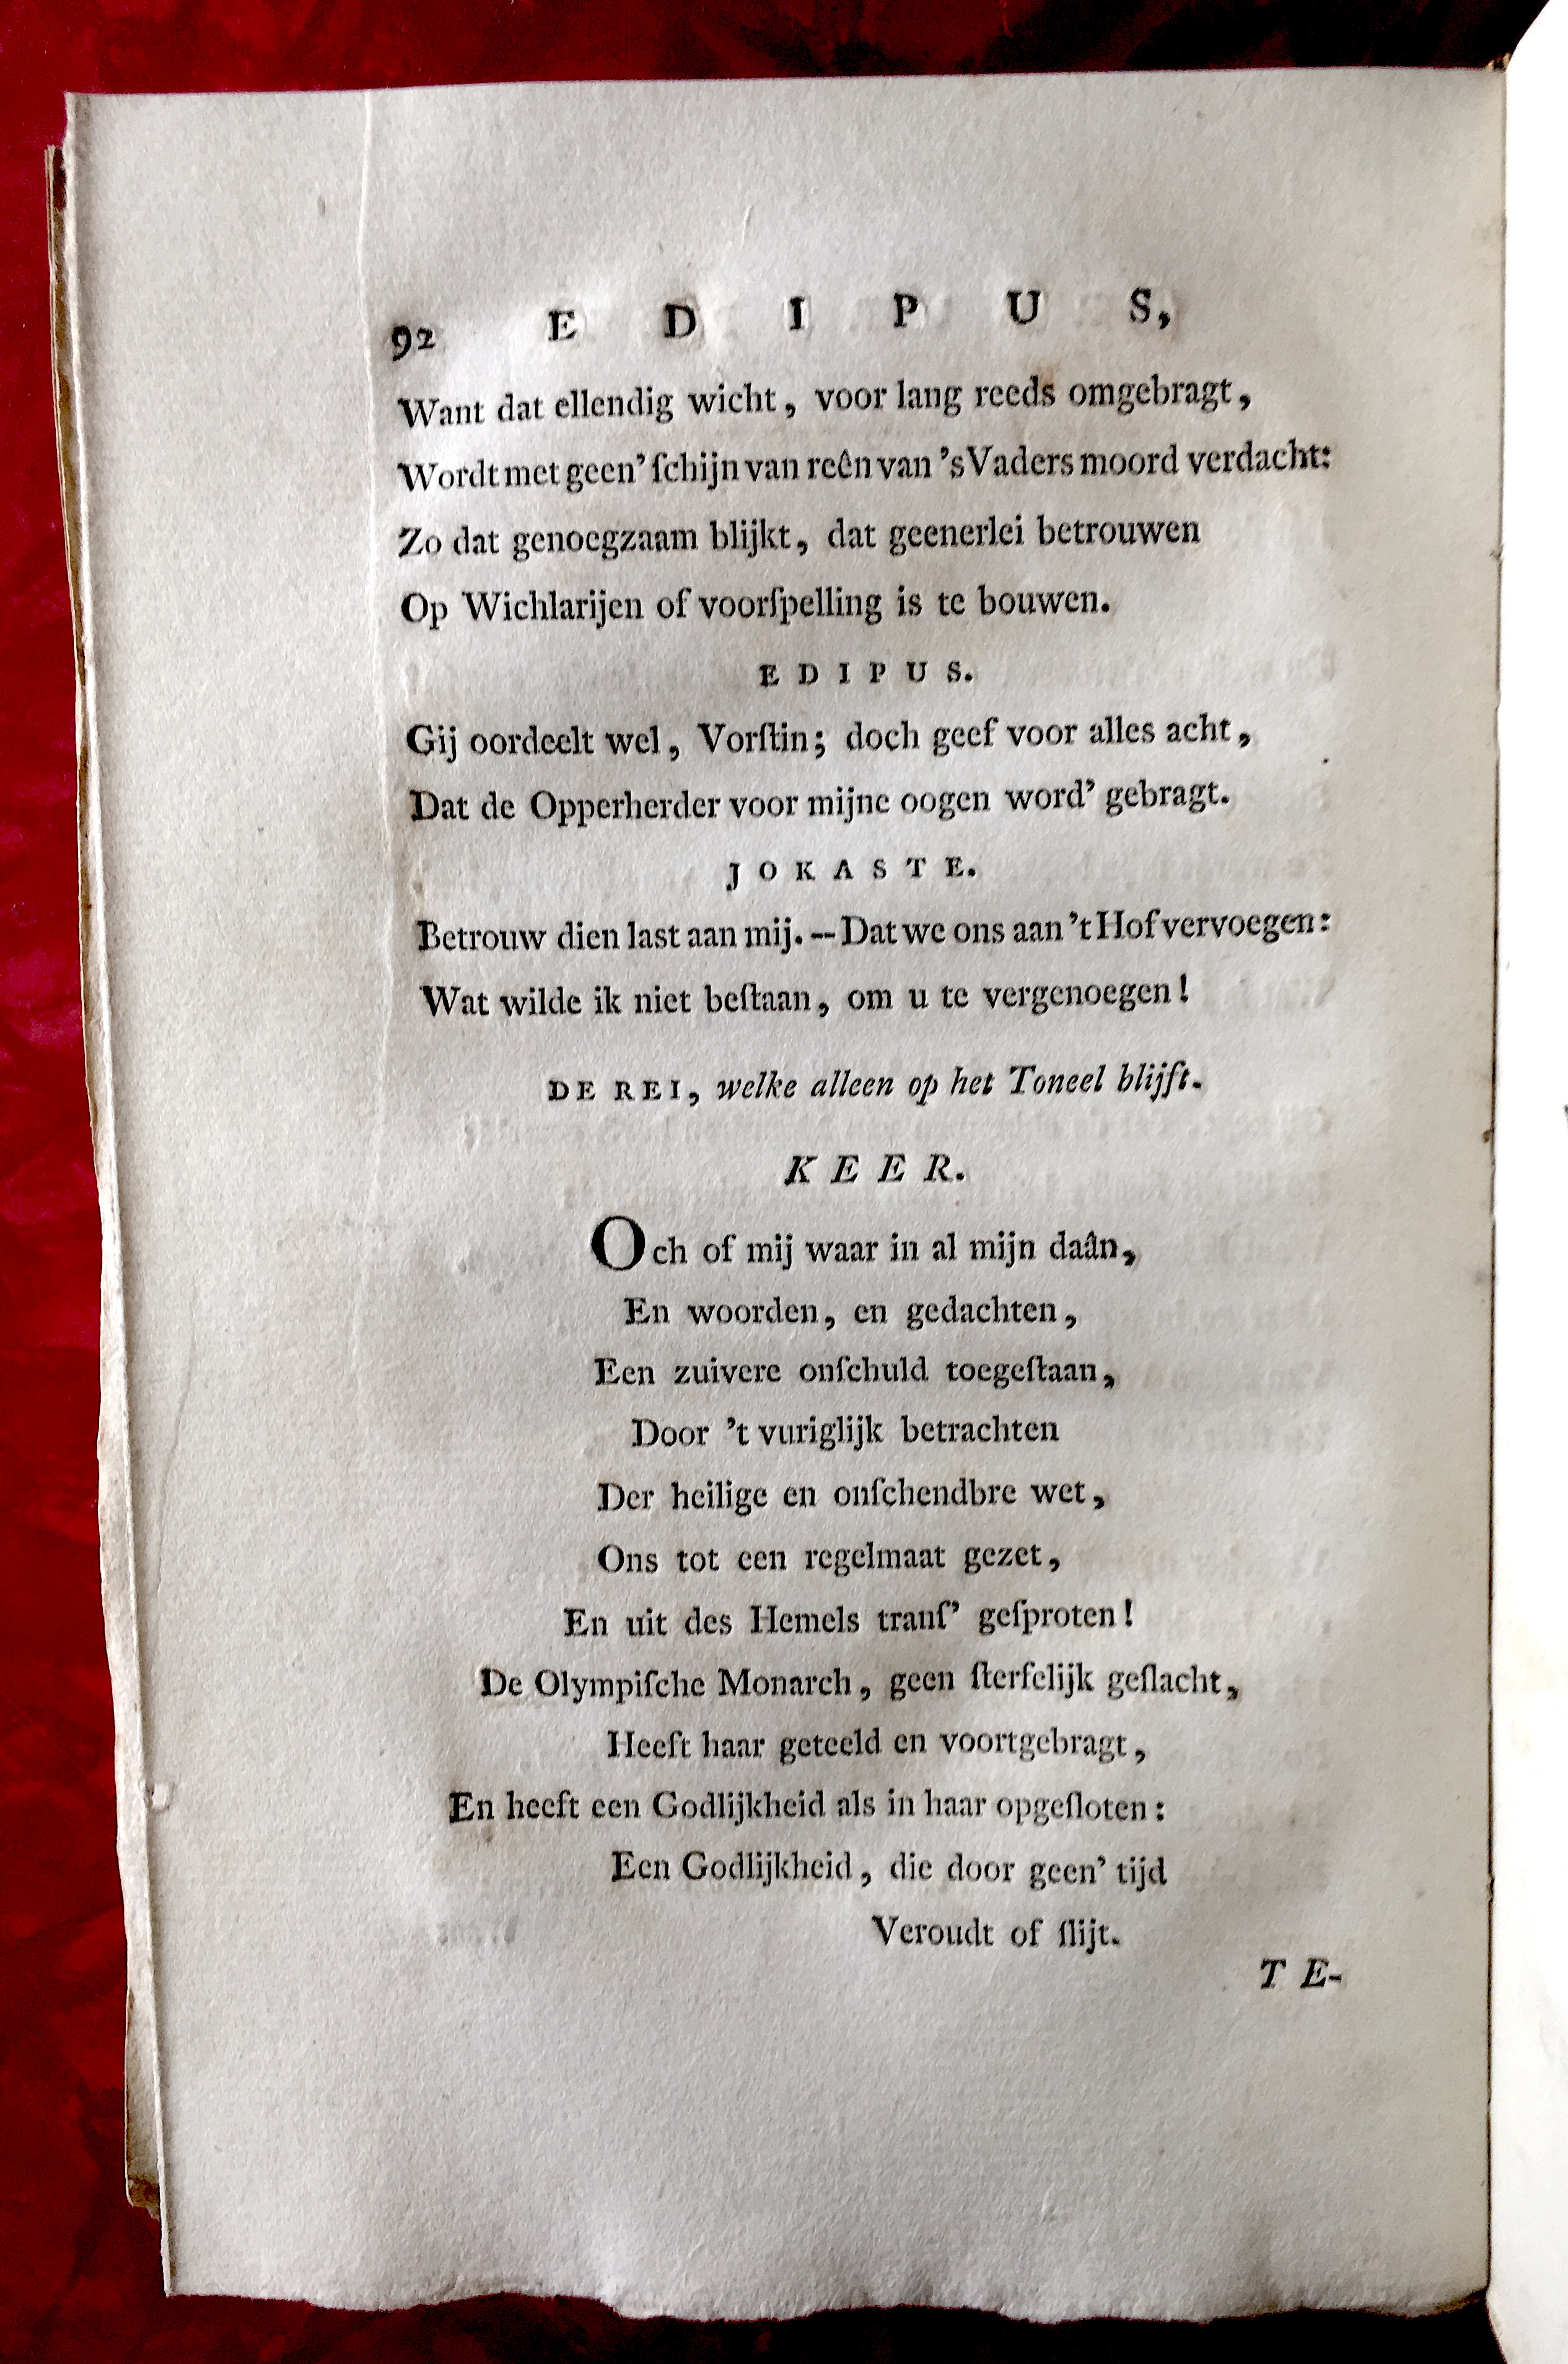 92 E D I P U S,
Want dat ellendig wicht, voor lang reeds omgebragt,
Wordt met geen' ſchijn van reên van 's Vaders moord verdacht:
Zo dat genoegzaam blijkt, dat geenerlei betrouwen
Op Wichlarijen of voorſpelling is te bouwen.
E D I P U S.
Gij oordeelt wel, Vorſtin; doch geef voor alles acht,
Dat de Opperherder voor mijne oogen word' gebragt.
J O K A S T E.
Betrouw dien last aan mij. — Dat we ons aan 't Hof vervoegen:
Wat wilde ik niet beſtaan, om u te vergenoegen!
DE REI, welke alleen op het Toneel blijft.
K E E R.
Och of mij waar in al mijn daân,
En woorden, en gedachten,
Een zuivere onſchuld toegeſtaan,
Door 't vuriglijk betrachten
Der heilige en onſchendbre wet,
Ons tot een regelmaat gezet,
En uit des Hemels tranſ' geſproten!
De Olympiſche Monarch, geen ſterfelijk geſlacht,
Heeft haar geteeld en voortgebragt,
En heeft een Godlijkheid als in haar opgeſloten:
Een Godlijkheid, die door geen' tijd
Veroudt of ſlijt.
T E-